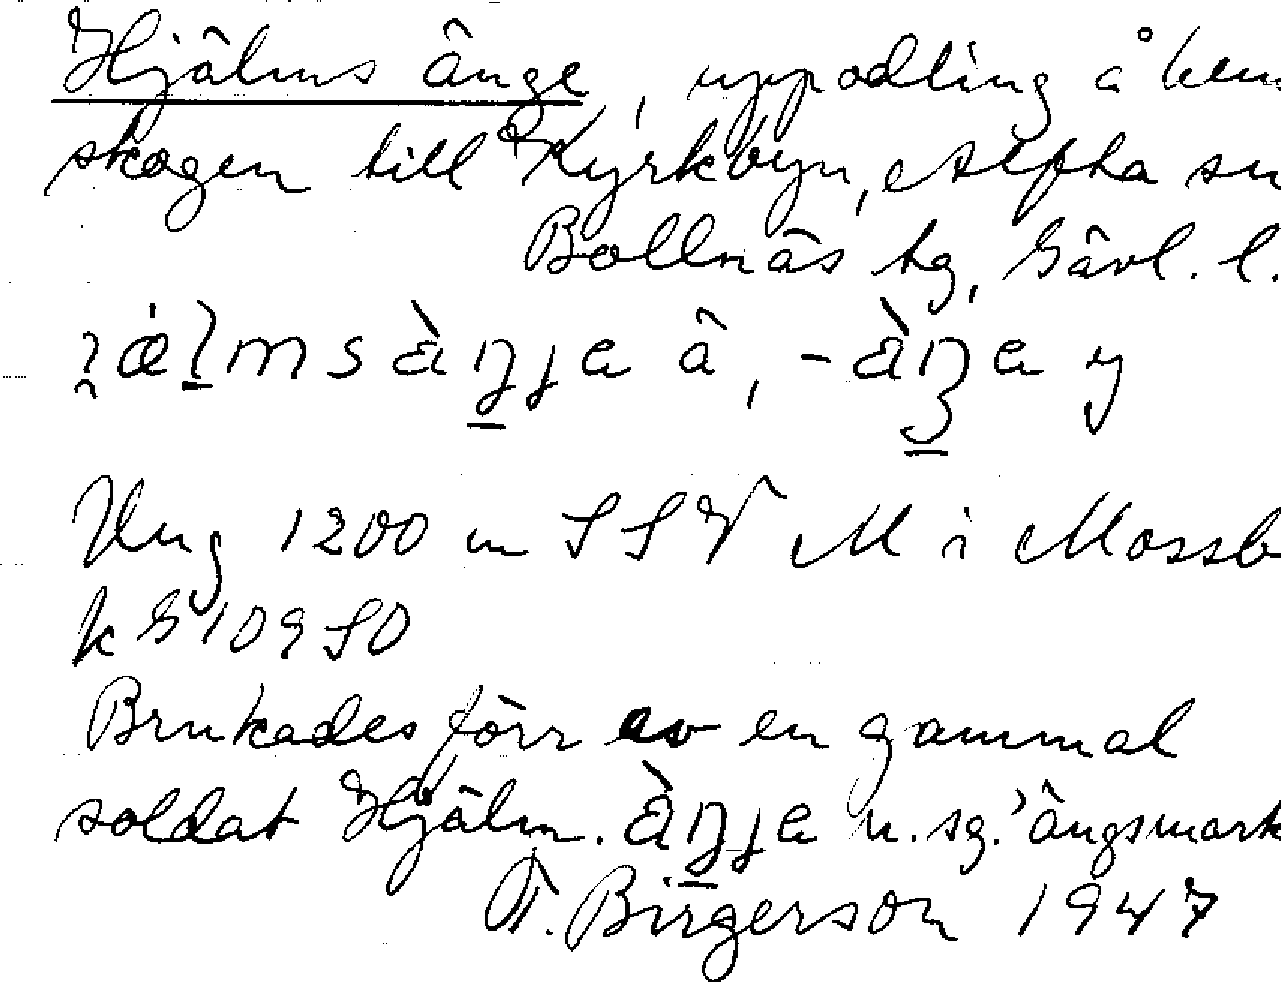 Hjälms änge, uppodling å hem
skogen till Kyrkbyn, Alfta sn
Bollnäs tg, Gävl. l.
msàŋɟe â, -àŋe y
Ung 1200 m SSV M i Mossb
k G 109 SO
Brukades förr av en gammal
soldat Hjälm. àŋɟe n. sg. 'ängsmark
F. Birgerson 1947